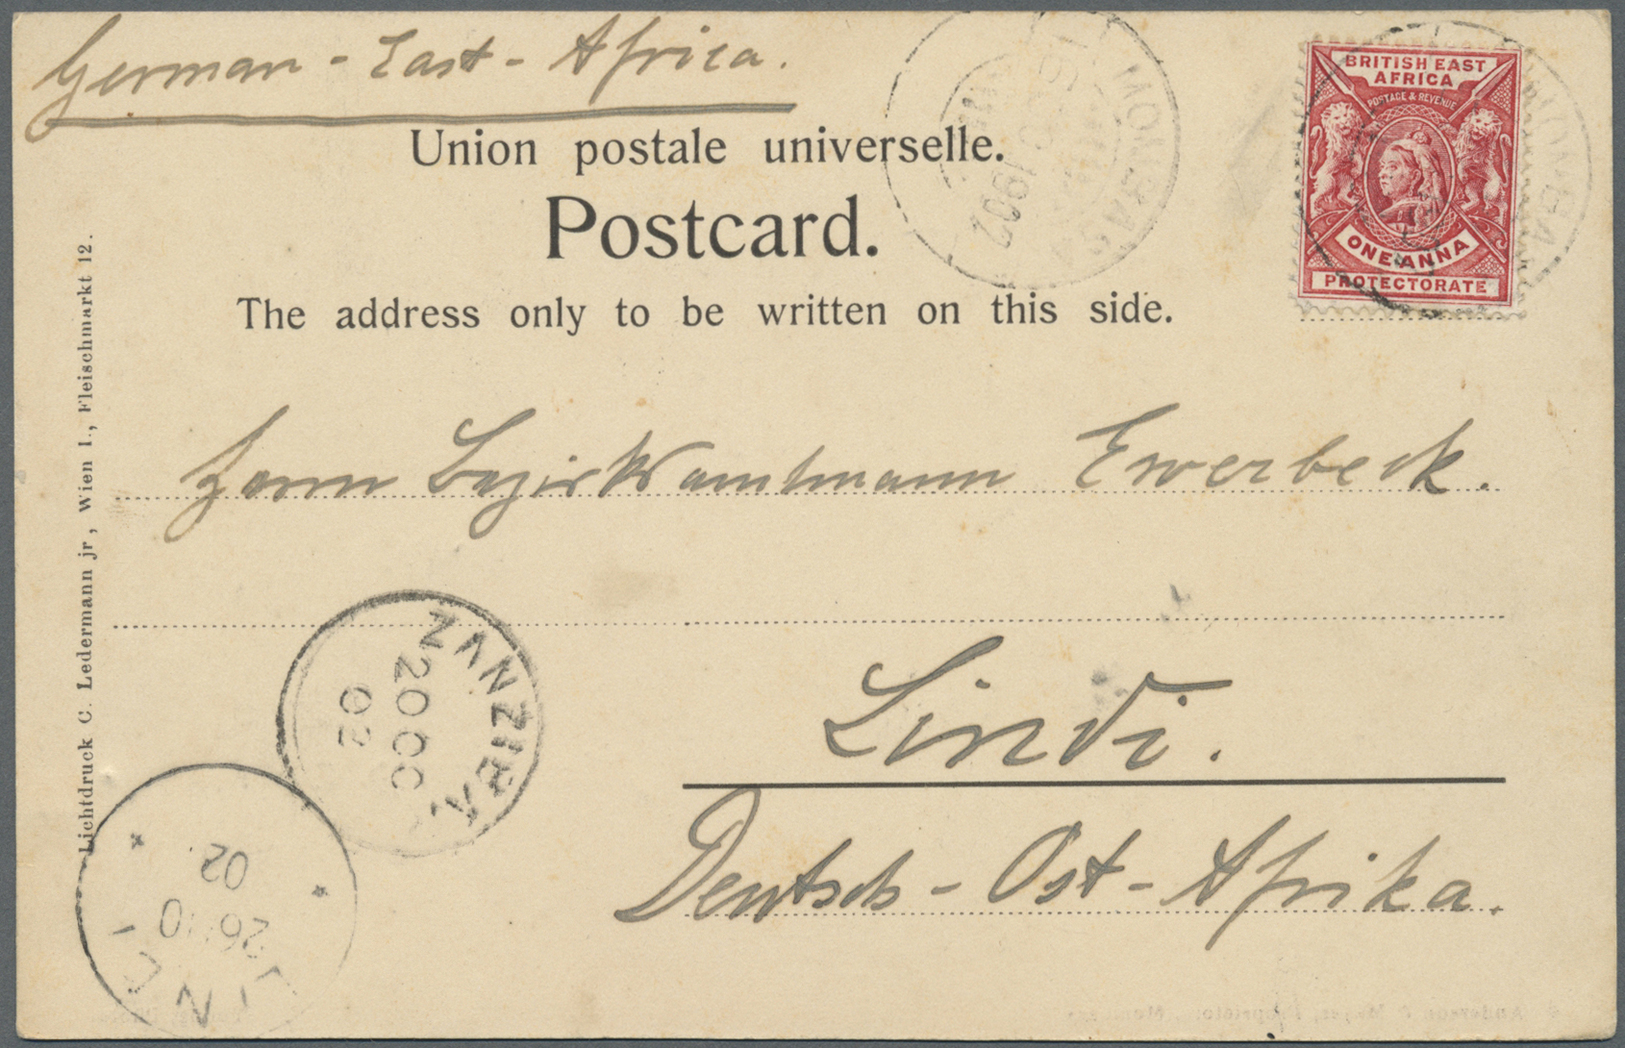 German - East - Africa.
Union postale universelle.
Postcard.
The address only to be written on this side.
MOMBASA
1902
BRITISH EAST
AFRICA
POSTAGE & REVENUE
ONE ANNA
PROTECTORATE
MOMBASA
Herrn Bezirksamtmann Ewerbeck.
Lindi.
Deutsch - Ost - Afrika.
ZANZIBAR
20 OC
02
LINDI
26/10
02.
Lichtdruck C. Ledermann jr, Wien I., Fleischmarkt 12.